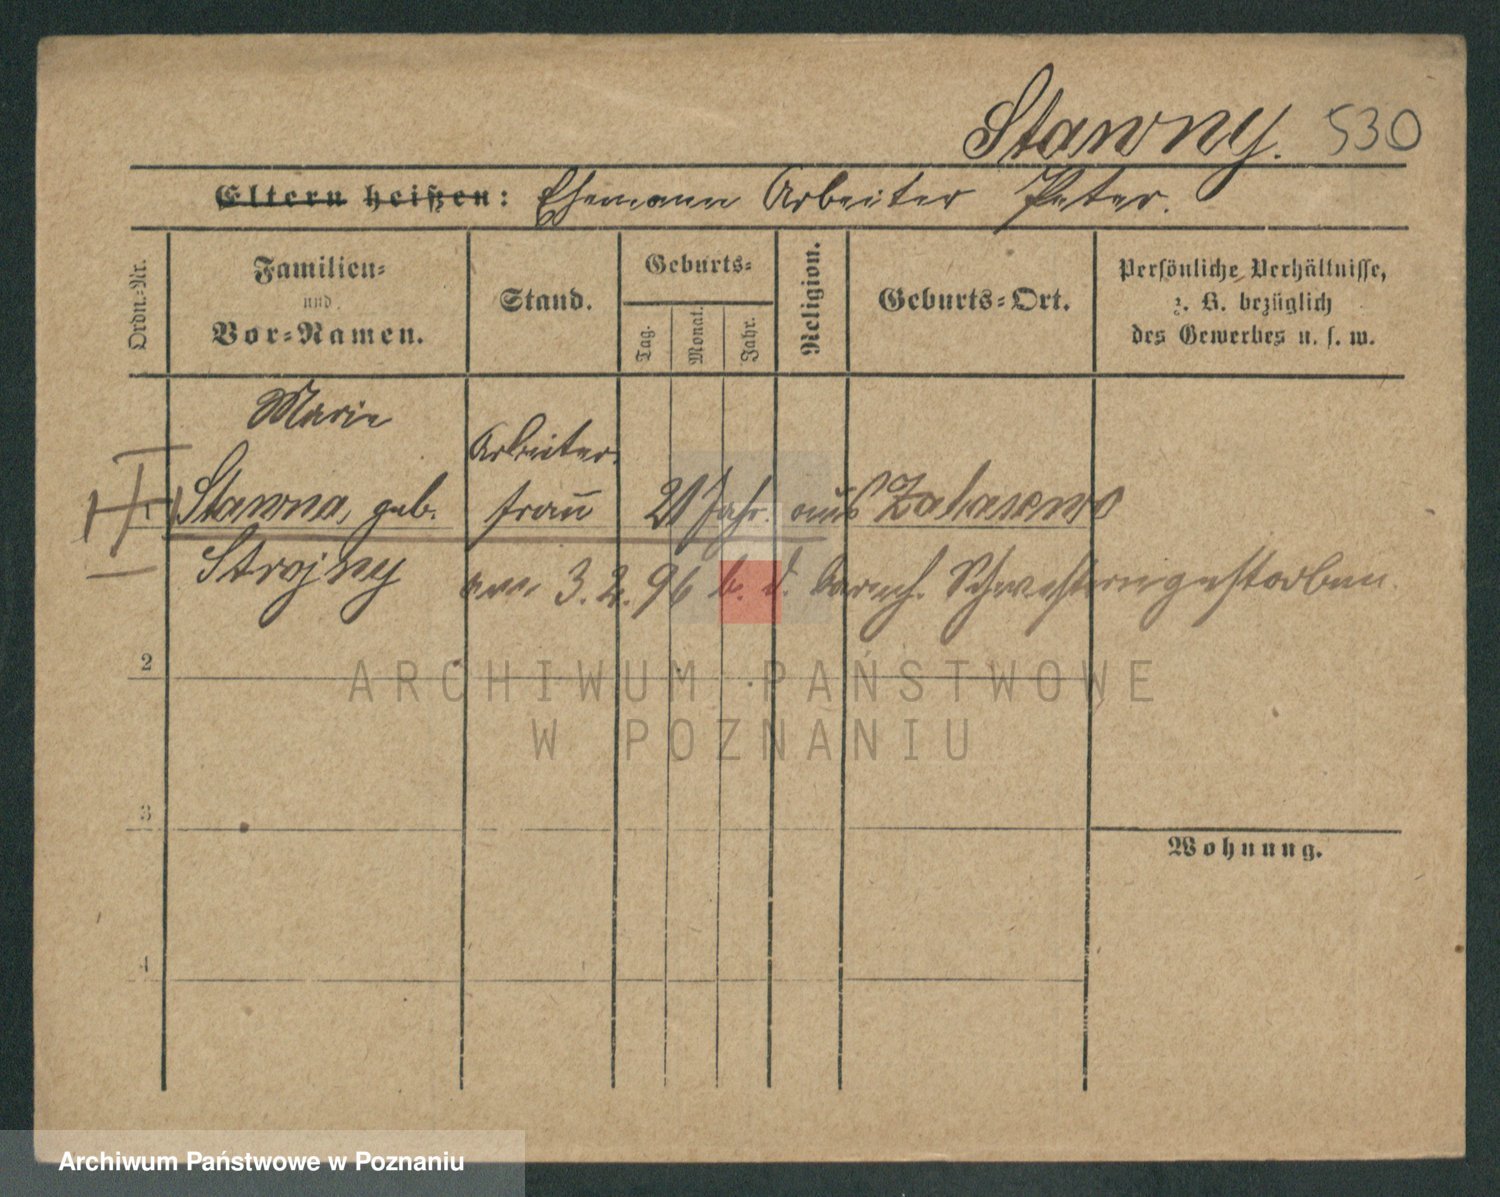 Stawny. 530
Eltern heißen: Ehemann Arbeiter Peter.
Ordn.-Nr.
Familien-
und
Vor-Namen.
Stand.
Geburts-
Tag.
Monat.
Jahr.
Religion.
Geburts-Ort.
Persönliche Verhältnisse,
z. B. bezüglich
des Gewerbes u. s. w.
Marie
Stawna, geb.
Strojny
Arbeiter-
frau
21 Jahr. aus Zalasewo
am 3. 2. 96 b. d. barmh. Schwestern gestorben.
2
3
4
Wohnung.
ARCHIWUM PAŃSTWOWE
W POZNANIU
Archiwum Państwowe w Poznaniu